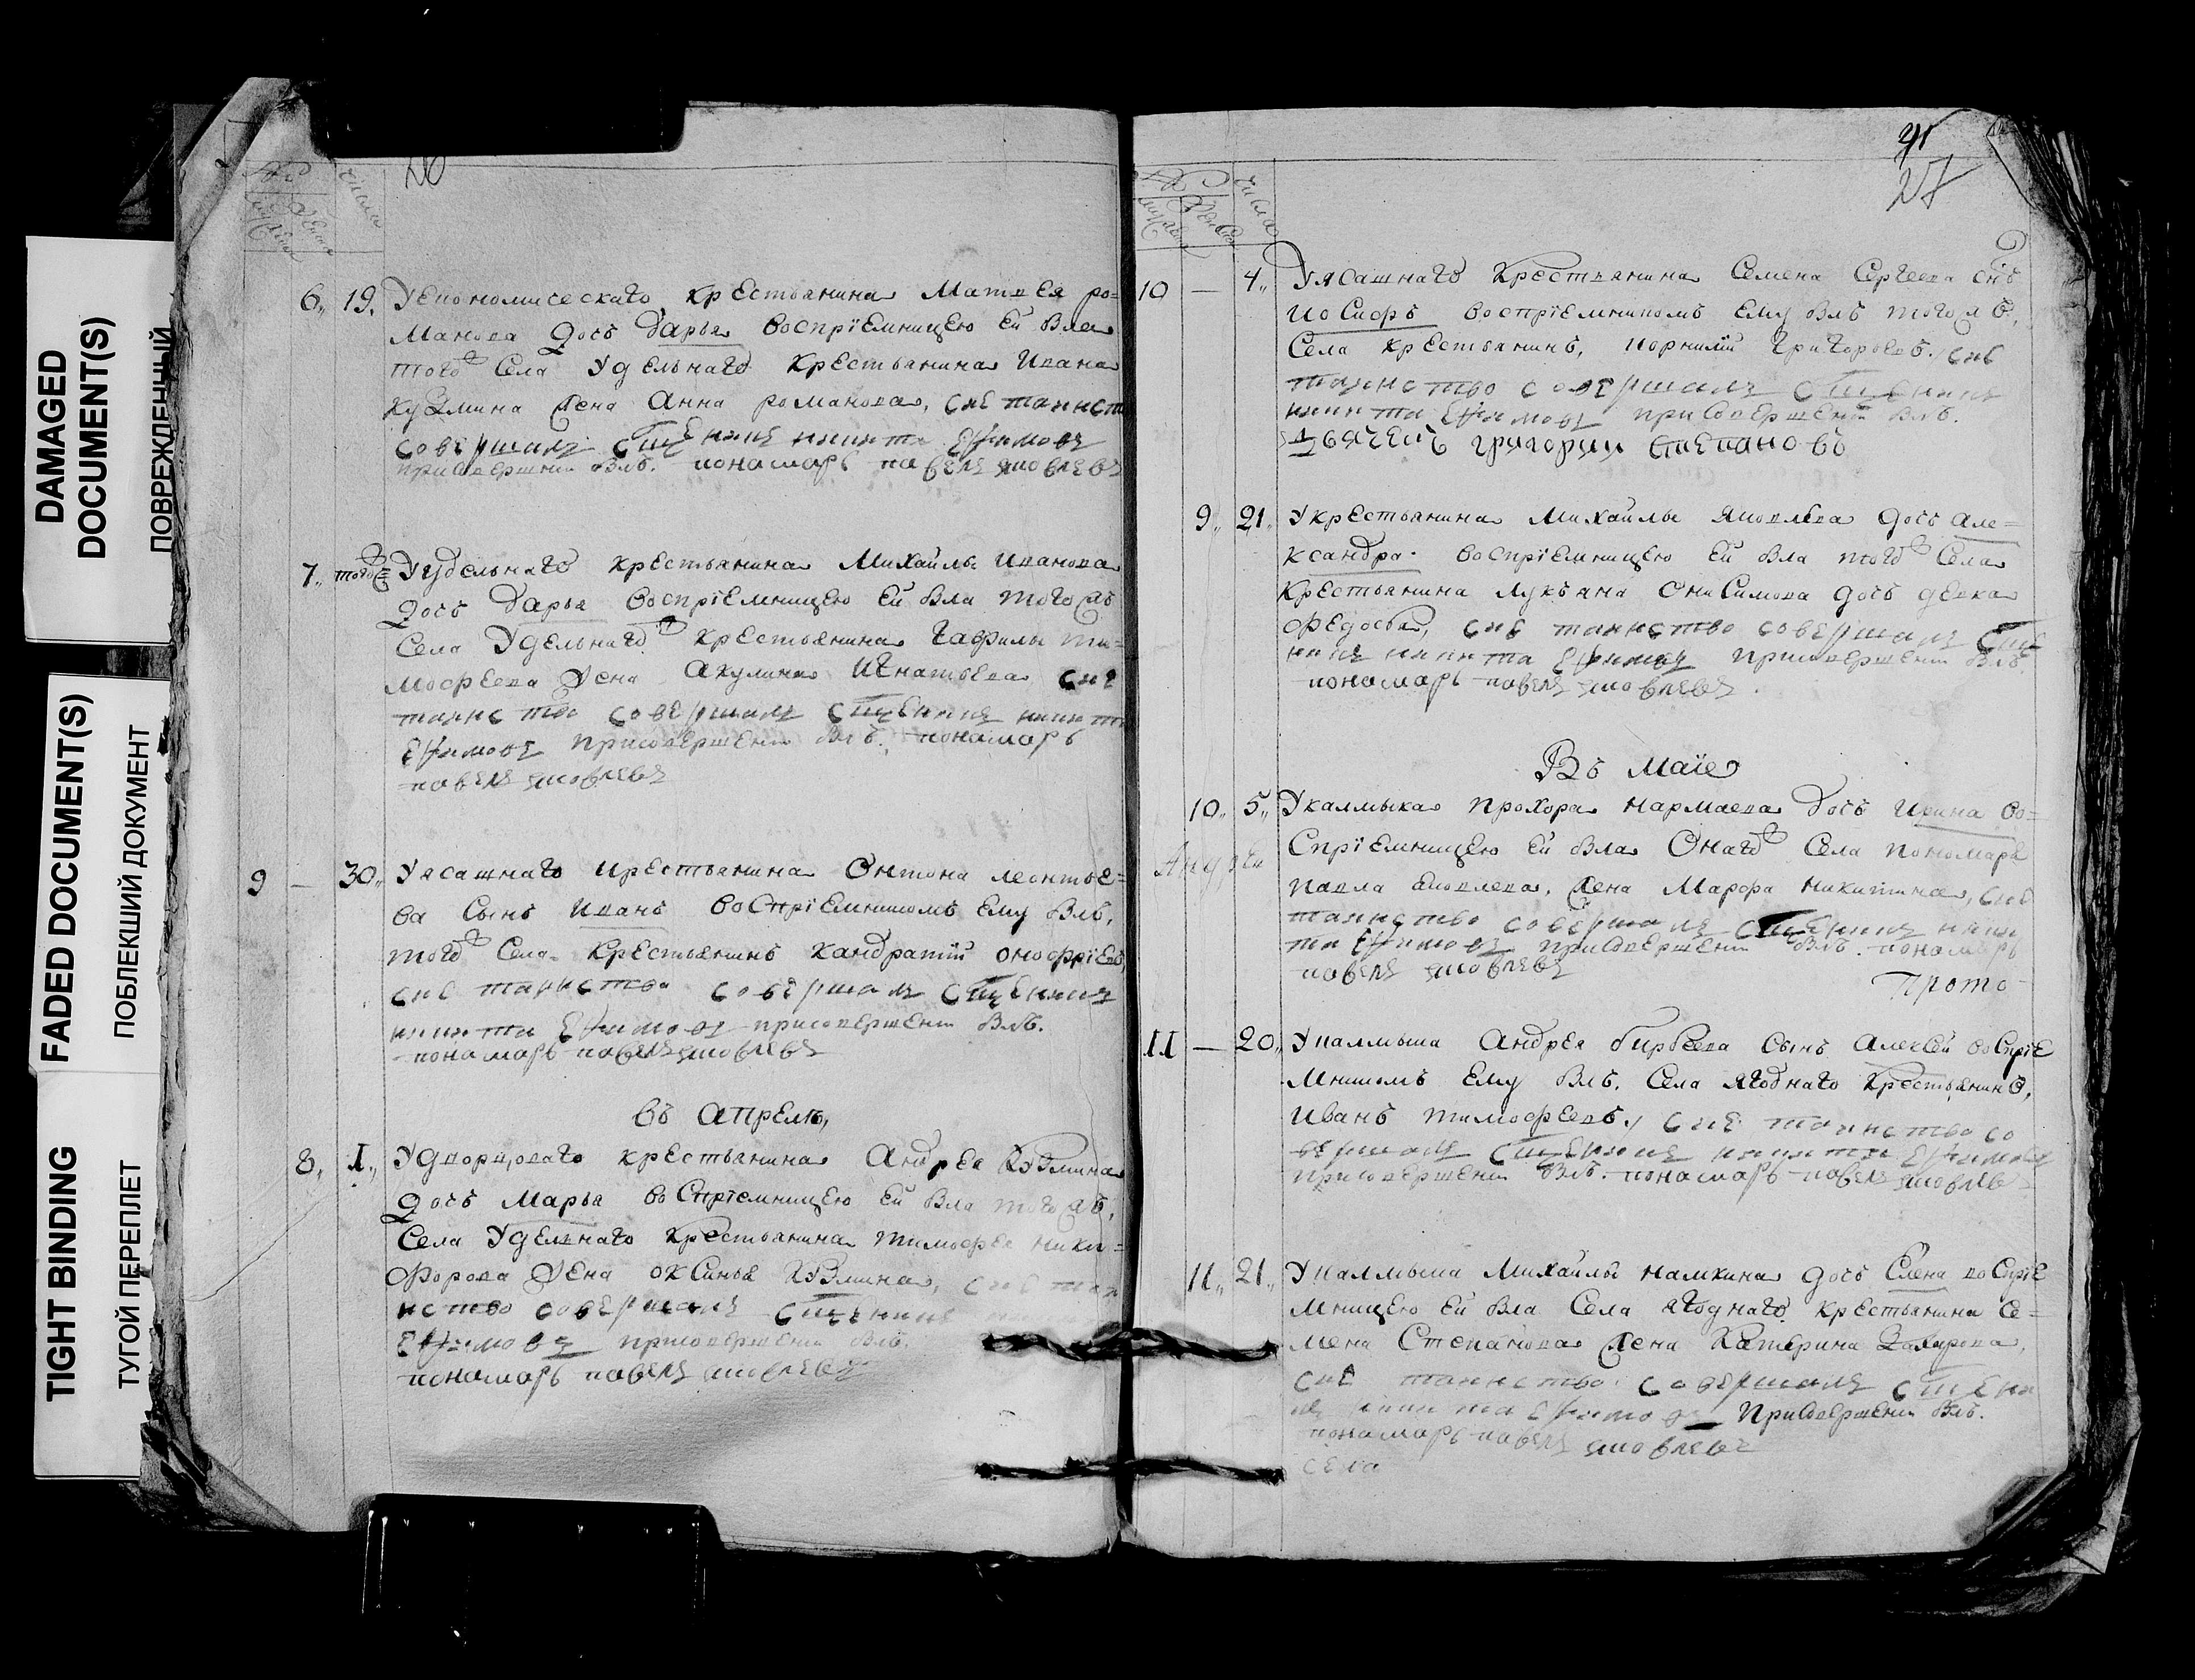 DAMAGED
DOCUMENT(S)
ПОВРЕЖДЕННЫЙ
FADED DOCUMENT(S)
ПОБЛЕКШИЙ ДОКУМЕНТ
TIGHT BINDING
ТУГОЙ ПЕРЕПЛЕТ
числа
6,, 19. Уекономическаго крестьянина Матвея ро=
манова дочь дарья воспрїемницею ей была
того Села удельнаго крестьянина Ивана
кузмина жена Анна романова, сие таинст
совершалъ сщенникъ никита Ефимовъ
присовершени былъ. понамарь павелъ яковлевъ
7,, того= Уудельнаго крестьянина Михайлы Иванова
дочь дарья воспрїемницею ей была тогожъ
Села Удельнаго крестьянина Гаврилы ти=
мофеева жена Акулина Игнатьева сие
таинство совершалъ сщенникъ никита
Ефимовъ присовершени былъ. понамарь
павелъ яковлевъ
9 — 30,, Уясашнаго крестьянина Онтона леонтье=
ва Сынъ Иванъ воспрїемникомъ ему былъ,
того Села крестьянинъ кандратïй онофрïевъ
сие таинство совершалъ сщенникъ
никита Ефимовъ присовершени былъ.
понамарь павелъ яковлевъ
въ апреле,
8,, 1,, Удворцоваго крестьянина Андрея кузмина
дочь Марья воспрïемницею ей была тогожъ,
Села Удельнаго крестьянина тимофея ники=
форова жена оксинья кузмина, сие таи
нство совершалъ сщенникъ
Ефимовъ присовершени былъ.
понамарь павелъ яковлевъ
27
числа
10 — 4,, Уясашнаго крестьянина Семена Сергеева снъ
иосифъ воспрïемникомъ ему былъ тогожъ,
Села крестьянинъ, корнилïй григорьевъ, сие
таинство совершалъ сщенникъ
никита Ефимовъ присовершени былъ.
дьячекъ григорий степановъ
9,, 21,, Укрестьянина Михайлы яковлева дочь але=
ксандра. воспрïемницею ей была того Села
крестьянина лукьяна онисимова дочь девка
федосья, сие таинство совершалъ сще
никъ никита Ефимовъ присовершени былъ
понамарь павелъ яковлевъ.
Въ маïе
10,, 5,, Укалмыка прохора нармаева дочь ирина во=
спрïемницею ей была Онаго Села пономаря
павла яковлева, жена Марфа никитина, сие
таинство совершалъ сщенникъ ники
та Ефимовъ присовершени былъ. понамарь
павелъ яковлевъ
Прото-
11 — 20,, Укалмыка Андрея Сынъ Алексей воспрïе
мникомъ ему былъ. Села ягоднаго крестьянинъ,
иванъ тимофеевъ, сие таинство со
вершалъ сщенникъ никита Ефимовъ
присовершени былъ. понамарь павелъ яковлевъ
11,, 21,, Укалмыка Михайлы намкина дочь Елена воспрïе
мницею ей была Села ягоднаго крестьянина Се=
мена Степанова жена катерина Захарова,
сие таинство совершалъ сщени
къ никита Ефимовъ присовершени былъ.
понамарь павелъ яковлевъ
села